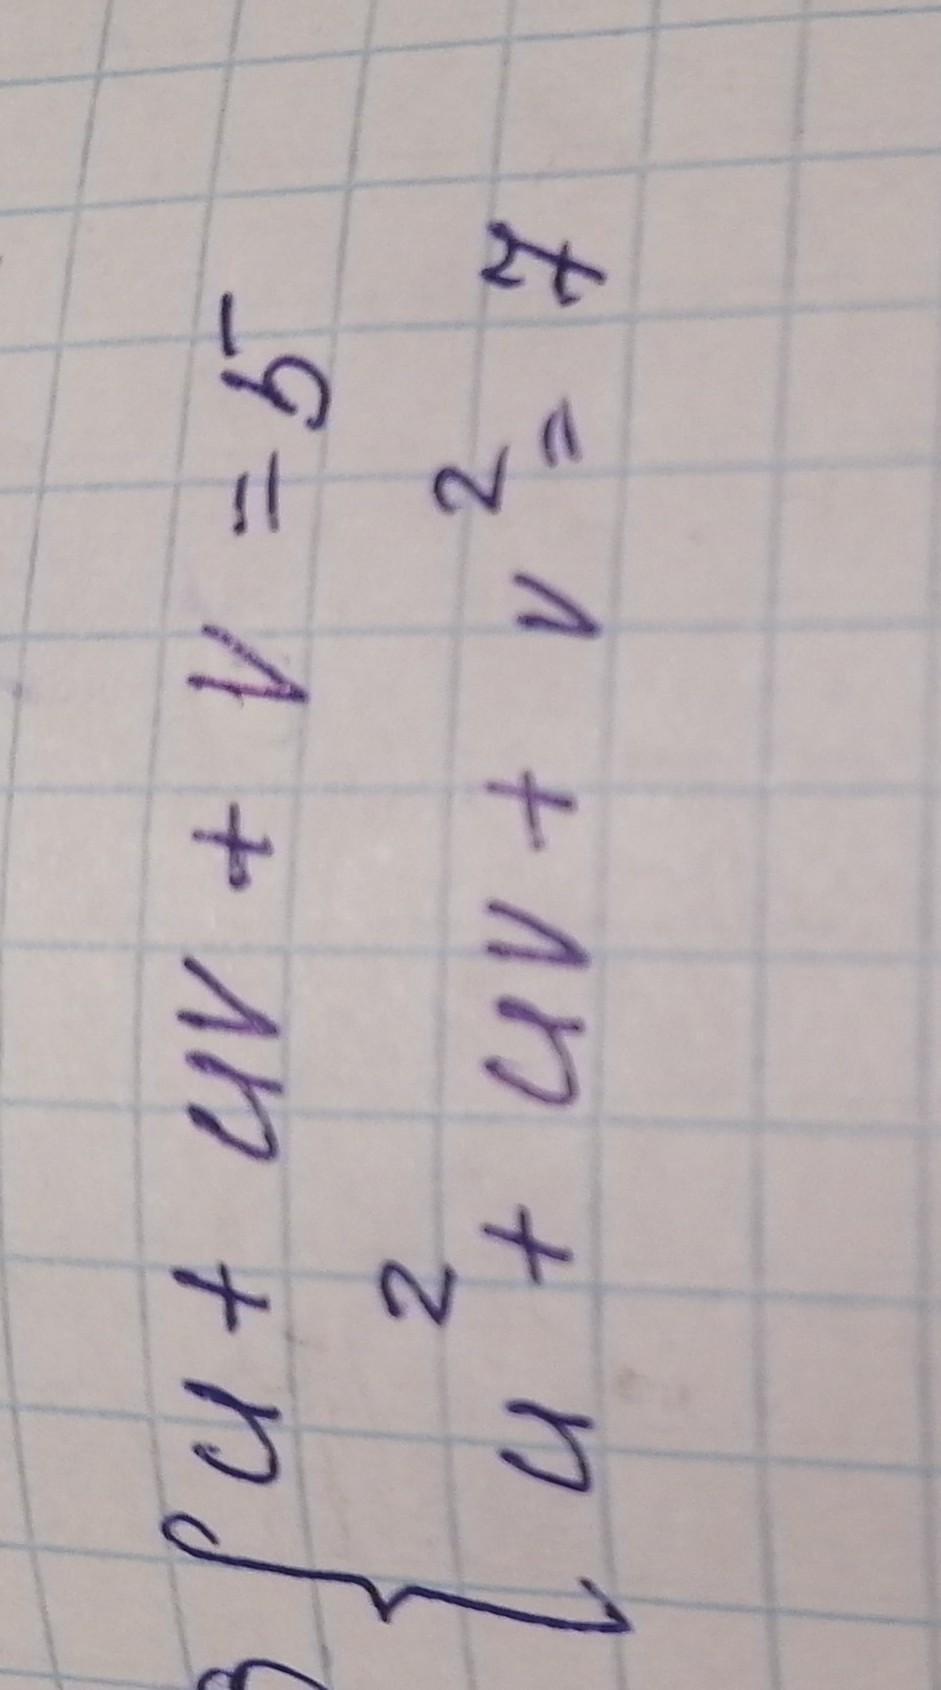 { u + uv + v = 5
u² + uv + v² = 7